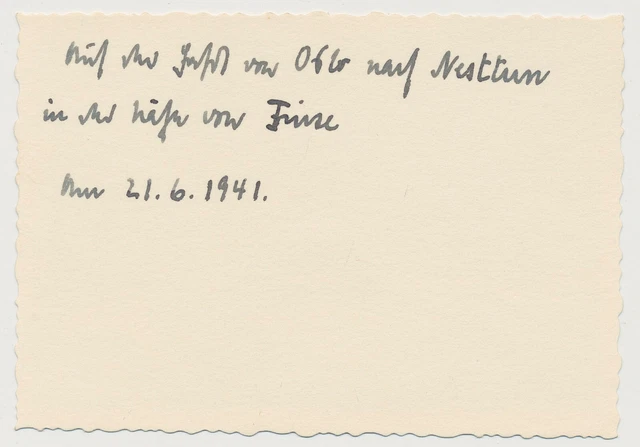 Auf der Fahrt von Oslo nach Nesttun
in der Nähe von Finse
Am 21.6.1941.